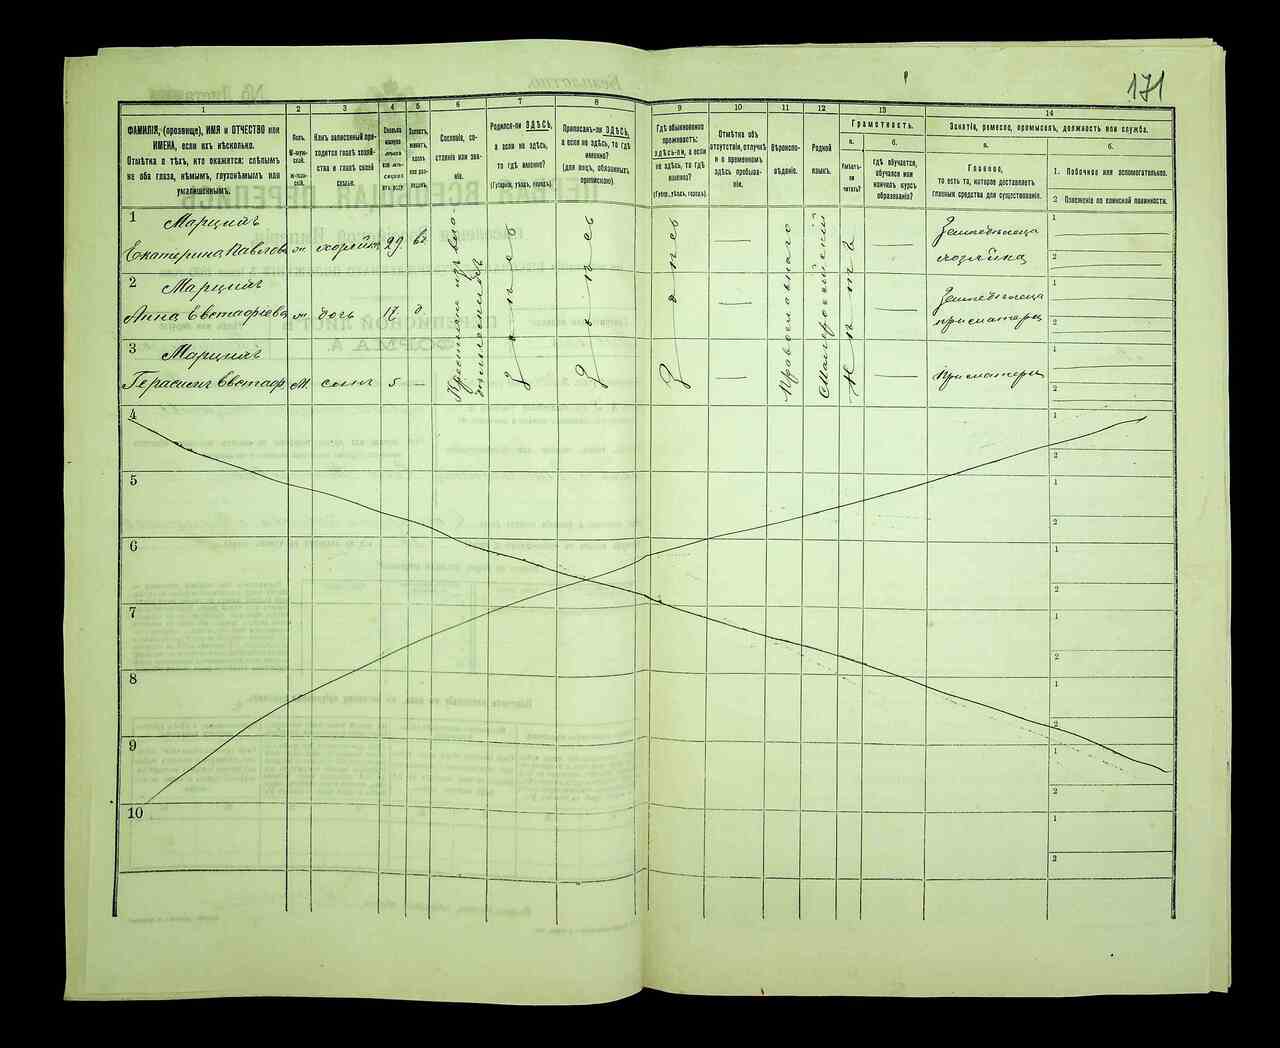 171
1 2 3 4 5 6 7 8 9 10 11 12 13 14
ФАМИЛІЯ, (прозвище), ИМЯ и ОТЧЕСТВО или
ИМЕНА, если ихъ нѣсколько.
Отмѣтка о тѣхъ, кто окажется: слѣпымъ
на оба глаза, нѣмымъ, глухонѣмымъ или
умалишеннымъ.
Полъ.
М-муж-
ской.
Ж-жен-
скій.
Какъ записанный при-
ходится главѣ хозяй-
ства и главѣ своей
семьи.
Сословіе, со-
стояніе или зва-
ніе.
Родился-ли ЗДѢСЬ,
а если не здѣсь,
то гдѣ именно?
(Губернія, уѣздъ, городъ).
Приписанъ-ли ЗДѢСЬ,
а если не здѣсь, то гдѣ
именно?
(для лицъ, обязанныхъ
припискою).
Гдѣ обыкновенно
проживаетъ:
здѣсь-ли, а если
не здѣсь, то гдѣ
именно?
(Губер., уѣздъ, городъ).
Отмѣтка объ
отсутствіи, отлучкѣ
и о временномъ
здѣсь пребыва-
ніи.
Вѣроиспо-
вѣданіе.
Родной
языкъ.
Грамотность.
а. б.
Умѣетъ-
ли
читать?
гдѣ обучается,
обучался или
кончилъ курсъ
образованія?
Занятіе, ремесло, промыселъ, должность или служба.
а. б.
Главное,
то есть то, которое доставляетъ
главныя средства для существованія.
1. Побочное или вспомогательное.
2 Положеніе по воинской повинности.
1 Марцинъ
Екатерина Павлов ж хозяйка 29 вд — — Земледѣлица 1
хозяйка 2
2 Марцинъ
Анна Евстафіева ж. дочь 17 д — — Земледѣлица 1
при матери 2
3 Марцинъ
Герасимъ Евстаф. М сынъ 5 — — — При матери 1
2
Крестьяне изъ
Здѣсь
Здѣсь
Здѣсь
Православнаго
Малороссійскій
Нѣтъ
4 1
2
5 1
2
6 1
2
7 1
2
8 1
2
9 1
2
10 1
2